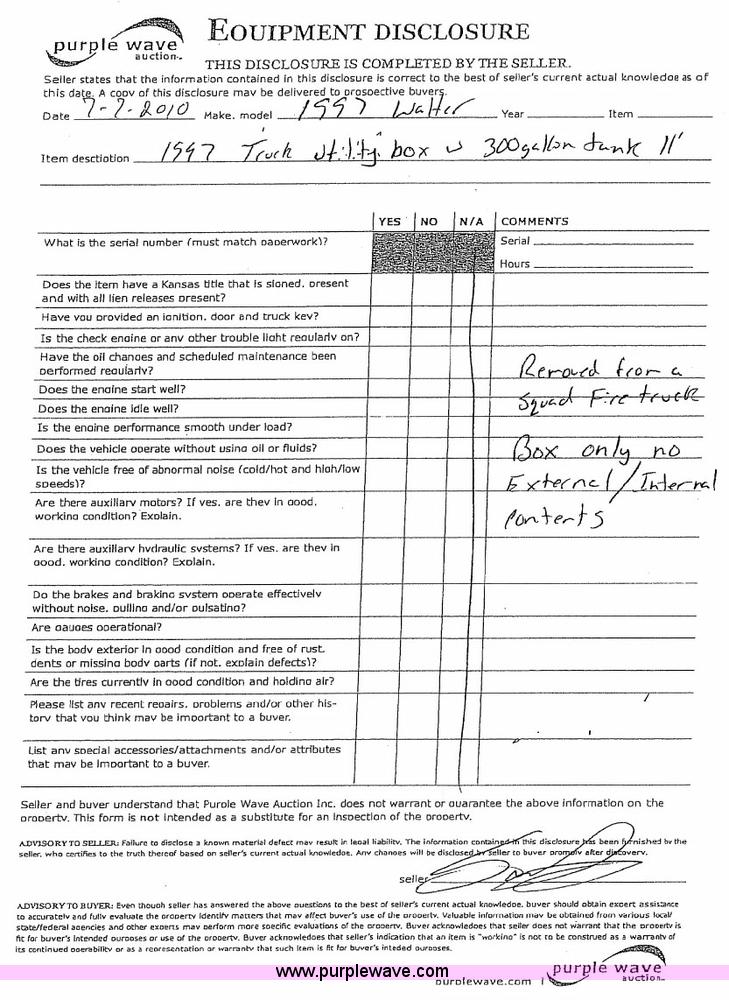 purple wave
auction™
EQUIPMENT DISCLOSURE
THIS DISCLOSURE IS COMPLETED BY THE SELLER.
Seller states that the information contained in this disclosure is correct to the best of seller's current actual knowledge as of
this date. A copy of this disclosure may be delivered to prospective buyers.
Date 7-7-2010 Make, model 1997 Walter Year Item
Item desctiption 1997 Truck utility box w 300gallon tank 11'
YES NO N/A COMMENTS
What is the serial number (must match paperwork)? Serial
Hours
Does the item have a Kansas title that is signed, present
and with all lien releases present?
Have you provided an ignition, door and truck key?
Is the check engine or any other trouble light regularly on?
Have the oil changes and scheduled maintenance been
performed regularly? Removed from a
Does the engine start well? Squad Fire truck
Does the engine idle well?
Is the engine performance smooth under load?
Does the vehicle operate without using oil or fluids? Box only no
Is the vehicle free of abnormal noise (cold/hot and high/low
speeds)? External/Internal
Are there auxiliary motors? If yes, are they in good,
working condition? Explain. contents
Are there auxiliary hydraulic systems? If yes, are they in
good, working condition? Explain.
Do the brakes and braking system operate effectively
without noise, pulling and/or pulsating?
Are gauges operational?
Is the body exterior in good condition and free of rust,
dents or missing body parts (if not, explain defects)?
Are the tires currently in good condition and holding air?
Please list any recent repairs, problems and/or other his-
tory that you think may be important to a buyer.
List any special accessories/attachments and/or attributes
that may be important to a buyer.
Seller and buyer understand that Purple Wave Auction Inc. does not warrant or guarantee the above information on the
property. This form is not intended as a substitute for an inspection of the property.
ADVISORY TO SELLER: Failure to disclose a known material defect may result in legal liability. The information contained in this disclosure has been furnished by the
seller, who certifies to the truth thereof based on seller's current actual knowledge. Any changes will be disclosed by seller to buyer promply after discovery.
seller
ADVISORY TO BUYER: Even though seller has answered the above questions to the best of seller's current actual knowledge, buyer should obtain expert assistance
to accurately and fully evaluate the property identify matters that may affect buyer's use of the property. Valuable information may be obtained from various local/
state/federal agencies and other experts may perform more specific evaluations of the property. Buyer acknowledges that seller does not warrant that the property is
fit for buyer's intended purposes or use of the property. Buyer acknowledges that seller's indication that an item is "working" is not to be construed as a warranty of
its continued operability or as a representation or warranty that such item is fit for buyer's inteded purposes.
www.purplewave.com
purplewave.com |
purple wave
auction™